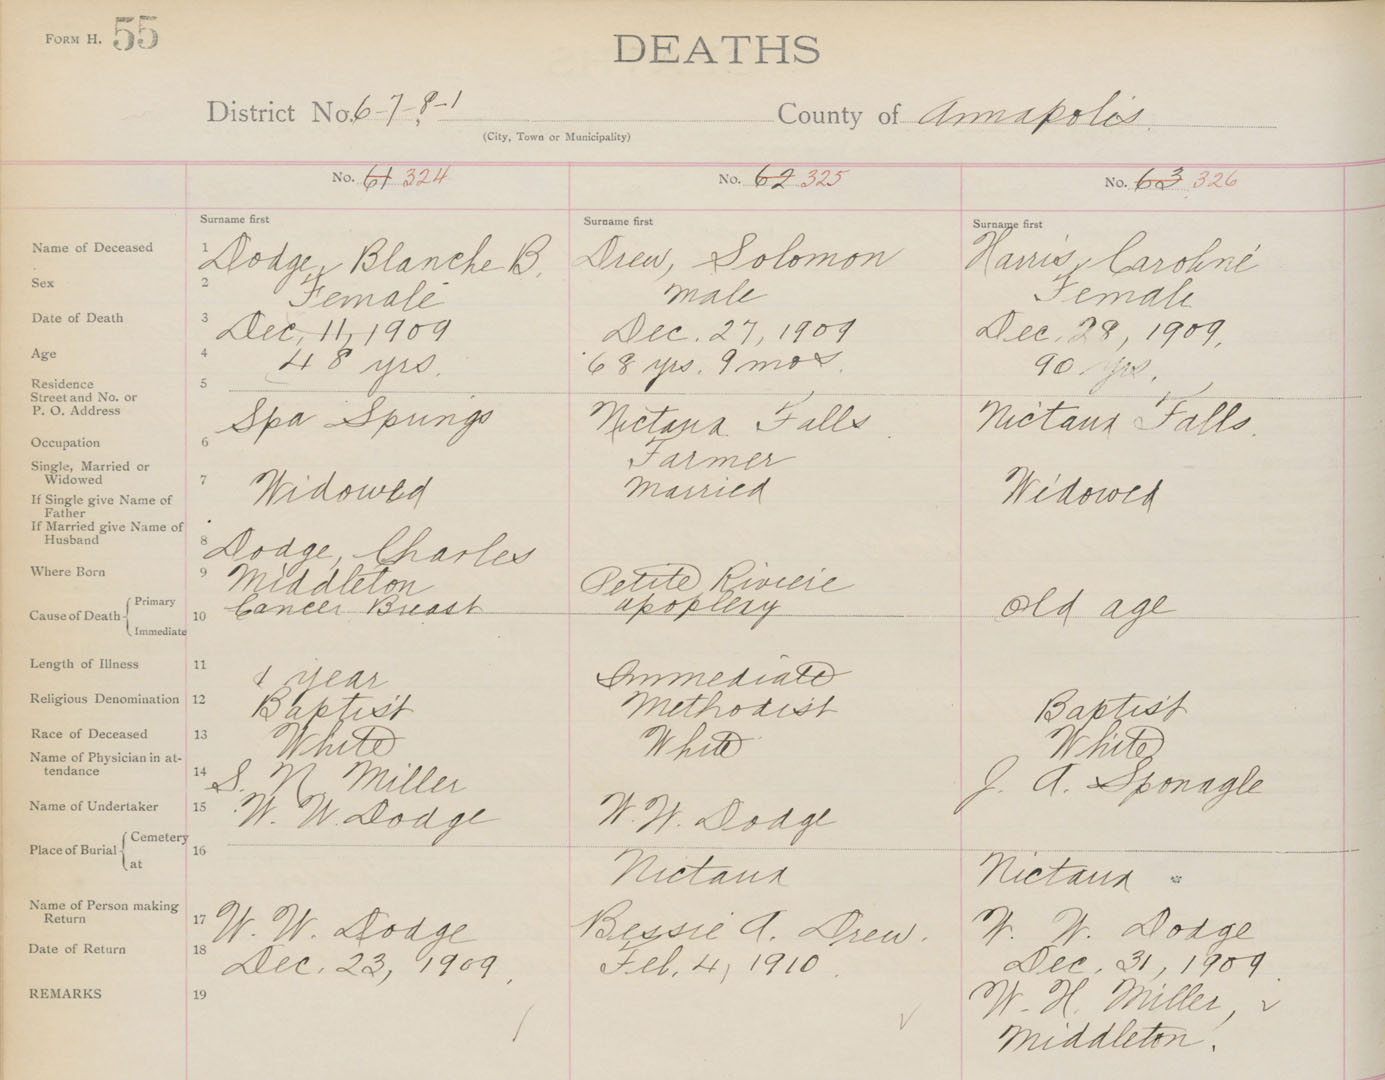 FORM H. 55
DEATHS
District No. 6-7-8-1
County of Annapolis
(City, Town or Municipality)
No. 61 324
No. 62 325
No. 63 326
Surname first
Surname first
Surname first
Name of Deceased 1 Dodge, Blanche B. Drew, Solomon Harris, Caroline
Sex 2 Female male Female
Date of Death 3 Dec. 11, 1909 Dec. 27, 1909 Dec. 28, 1909.
Age 4 48 yrs. 68 yrs. 9 mos. 90 yrs.
Residence
Street and No. or
P. O. Address 5 Spa Springs Nictaux Falls Nictaux Falls.
Occupation 6 Farmer
Single, Married or
Widowed 7 Widowed married Widowed
If Single give Name of
Father
If Married give Name of
Husband 8 Dodge, Charles
Where Born 9 Middleton Petite Riviere
Cause of Death Primary
Immediate 10 Cancer Breast apoplexy old age
Length of Illness 11 1 year Immediate
Religious Denomination 12 Baptist Methodist Baptist
Race of Deceased 13 White White White
Name of Physician in at-
tendance 14 S. N Miller J. A. Sponagle
Name of Undertaker 15 W. W. Dodge W. W. Dodge
Place of Burial Cemetery
at 16 Nictaux Nictaux
Name of Person making
Return 17 W. W. Dodge Bessie A. Drew. W. W. Dodge
Date of Return 18 Dec. 23, 1909. Feb. 4, 1910. Dec. 31, 1909
REMARKS 19 W. H. Miller,
Middleton.